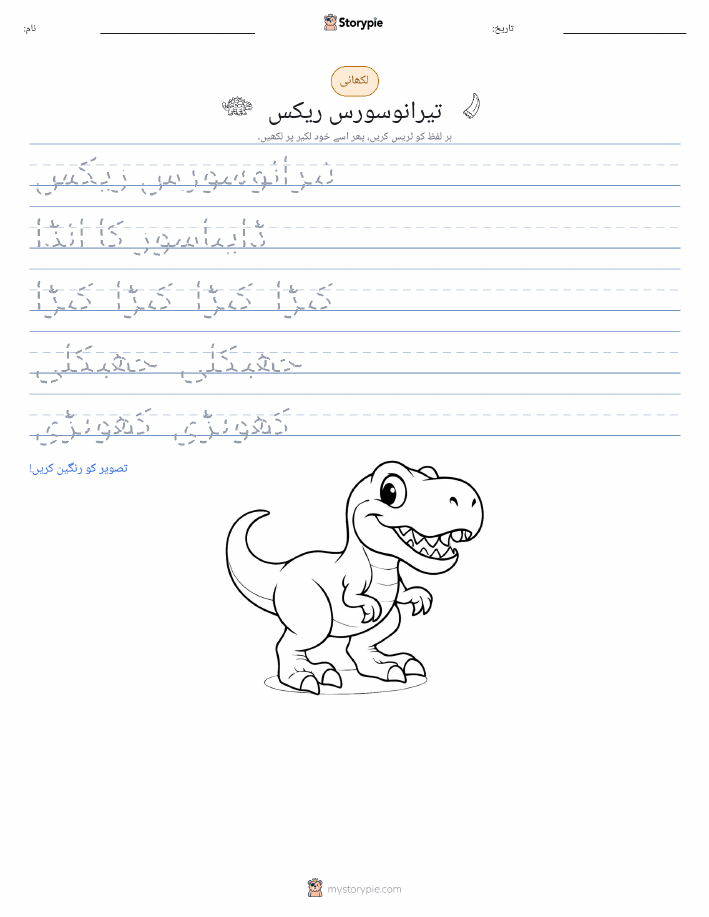 نام:
Storypie
تاریخ:
لکھائی
تیرانوسورس ریکس
ہر لفظ کو ٹریس کریں، پھر اسے خود لکیر پر لکھیں۔
تیرانوسورس ریکس
ڈایناسور کا انڈا
کیڑا کیڑا کیڑا کیڑا
چھپکلی چھپکلی
کھوپڑی کھوپڑی
تصویر کو رنگین کریں!
mystorypie.com